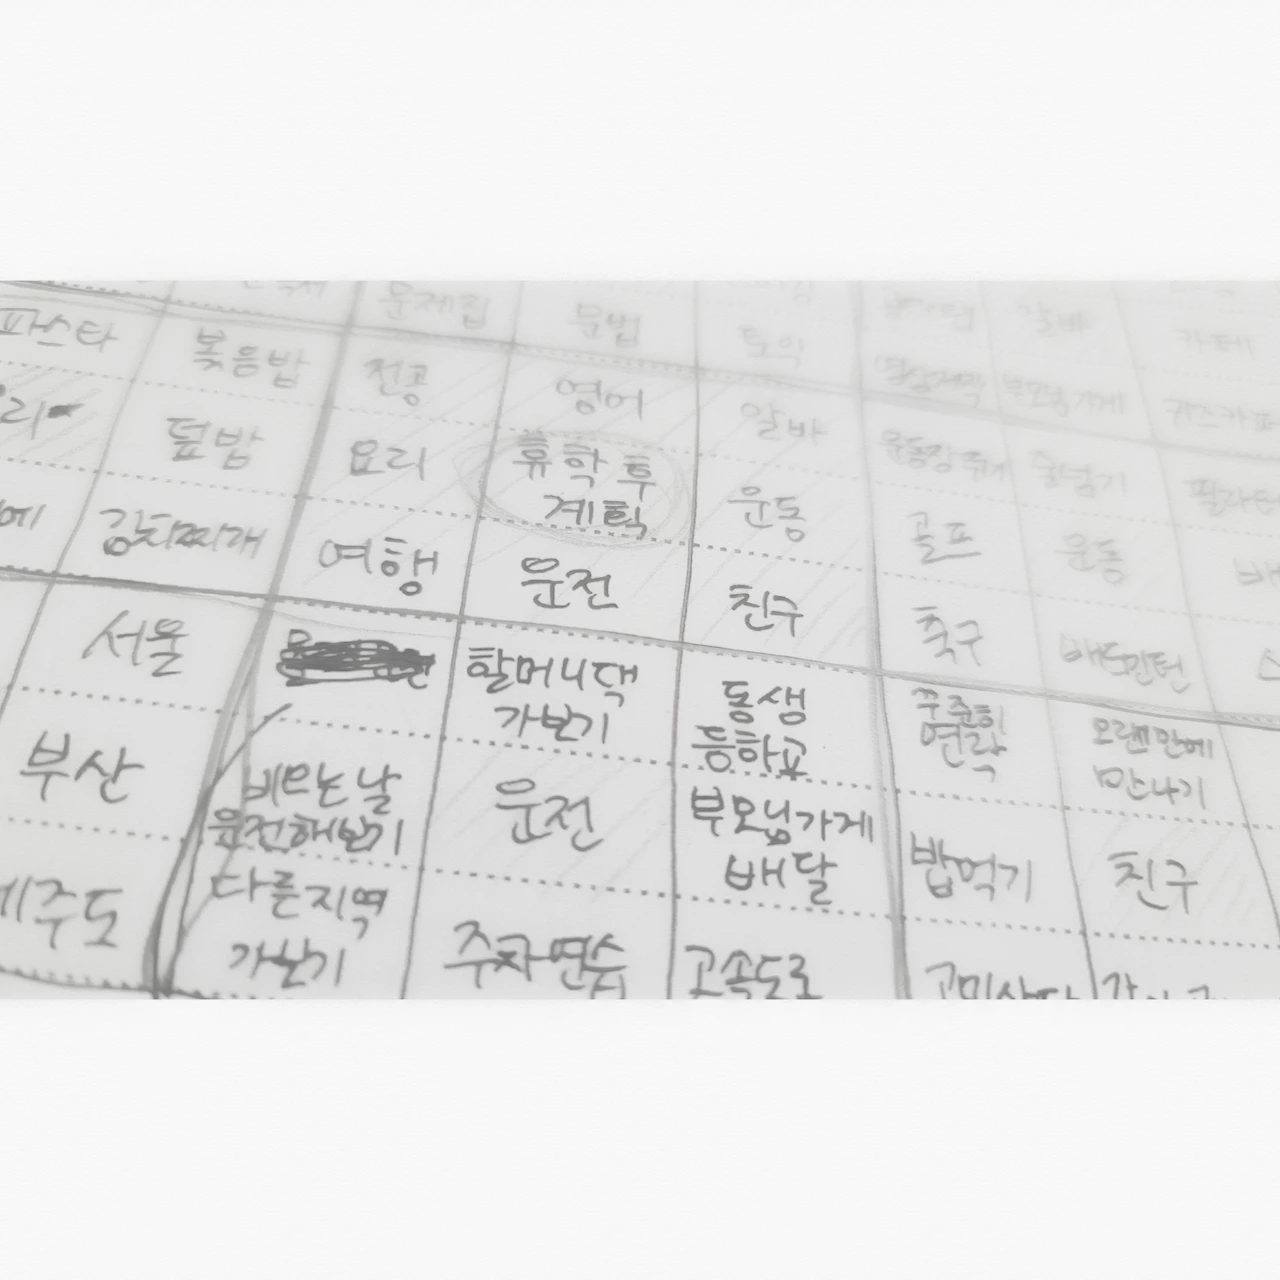 문제집 문법 토익
파스타 볶음밥 전공 영어 알바 영상제작 부모님가게 키즈카페
카페
덮밥 요리 휴학 후 운동 운동장 뛰기 줄넘기
계획
김치찌개 여행 운전 친구 골프 운동
축구 배드민턴
서울 할머니댁 동생 꾸준히 오랜만에
가보기 등하교 연락 만나기
부산 비오는날 운전 부모님가게 밥먹기 친구
운전해보기 배달
제주도 다른지역 주차연습 고속도로
가보기